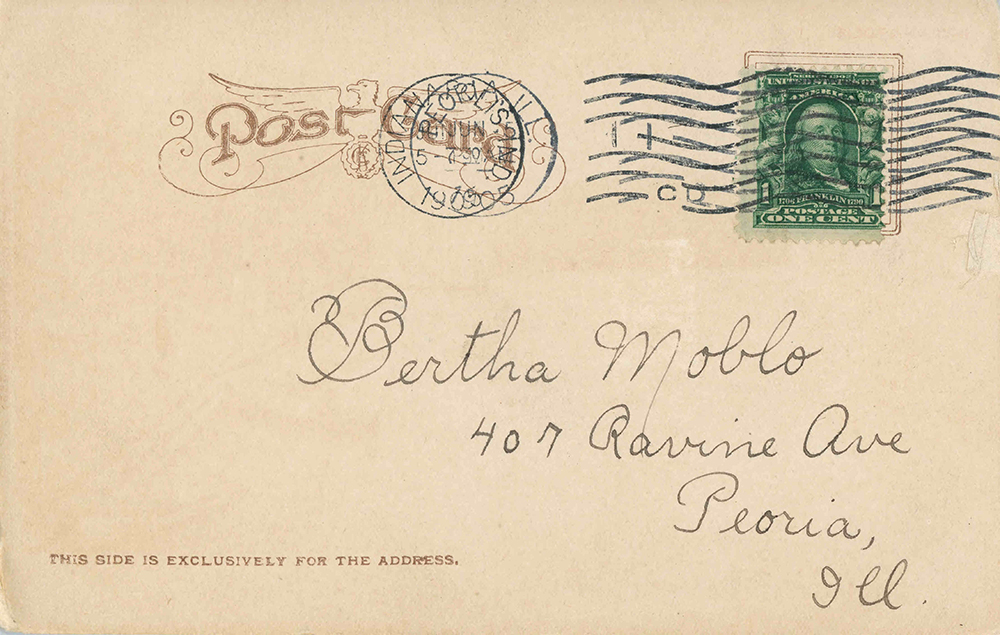 Post Card
INDIANAPOLIS, IND
1905
SERIES 1902
UNITED STATES OF
AMERICA
1 1
1706 FRANKLIN 1790
POSTAGE
ONE CENT
Bertha Moblo
407 Ravine Ave
Peoria,
Ill.
THIS SIDE IS EXCLUSIVELY FOR THE ADDRESS.